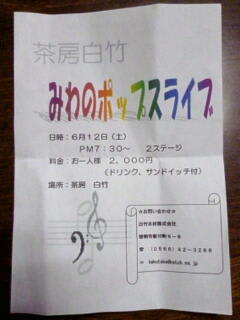 茶房白竹
みわのポップスライブ
日時：６月１２日（土）
ＰＭ７：３０～　２ステージ
料金：お一人様　２，０００円
（ドリンク、サンドイッチ付）
場所：茶房　白竹
☆お問い合わせ☆
白竹木材株式会社
☎　（０５６６）４２－３２６６